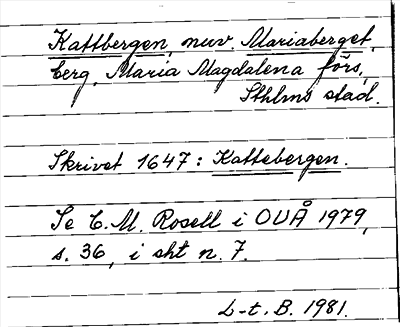 Kattbergen, nuv. Mariaberget,
berg, Maria Magdalena förs,
Sthlms stad.
Skrivet 1647: Kattebergen.
Se C. M. Rosell i OUÅ 1979,
s. 36, i sht n. 7.
L-t. B. 1981.